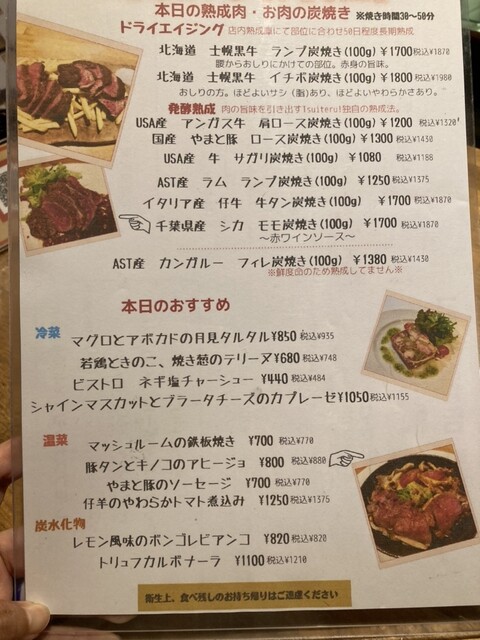 本日の熟成肉・お肉の炭焼き ※焼き時間30〜50分
ドライエイジング 店内熟成庫にて部位に合わせ50日程度長期熟成
北海道 士幌黒牛 ランプ炭焼き(100g) ¥1700税込¥1870
腰からおしりにかけての部位。赤身の旨味。
北海道 士幌黒牛 イチボ炭焼き(100g) ¥1800税込¥1980
おしりの方。ほどよいサシ(脂)あり、ほどよいやわらかさあり。
発酵熟成 肉の旨味を引き出すIsuiteru!独自の熟成法。
USA産 アンガス牛 肩ロース炭焼き(100g) ¥1200 税込¥1320
国産 やまと豚 ロース炭焼き(100g) ¥1300 税込¥1430
USA産 牛 サガリ炭焼き(100g) ¥1080 税込¥1188
AST産 ラム ランプ炭焼き(100g) ¥1250税込¥1375
イタリア産 仔牛 牛タン炭焼き(100g) ¥1700税込¥1870
千葉県産 シカ モモ炭焼き(100g) ¥1700税込¥1870
〜赤ワインソース〜
AST産 カンガルー フィレ炭焼き(100g) ¥1380 税込¥1430
※鮮度命のため熟成してません※
本日のおすすめ
冷菜
マグロとアボカドの月見タルタル¥850税込¥935
若鶏ときのこ、焼き葱のテリーヌ¥680税込¥748
ビストロ ネギ塩チャーシュー ¥440税込¥484
シャインマスカットとブラータチーズのカプレーゼ¥1050税込¥1155
温菜
マッシュルームの鉄板焼き ¥700 税込¥770
豚タンとキノコのアヒージョ ¥800 税込¥880
やまと豚のソーセージ ¥700税込¥770
仔羊のやわらかトマト煮込み ¥1250税込¥1375
炭水化物
レモン風味のボンゴレビアンコ ¥820税込¥820
トリュフカルボナーラ ¥1100税込¥1210
衛生上、食べ残しのお持ち帰りはご遠慮ください